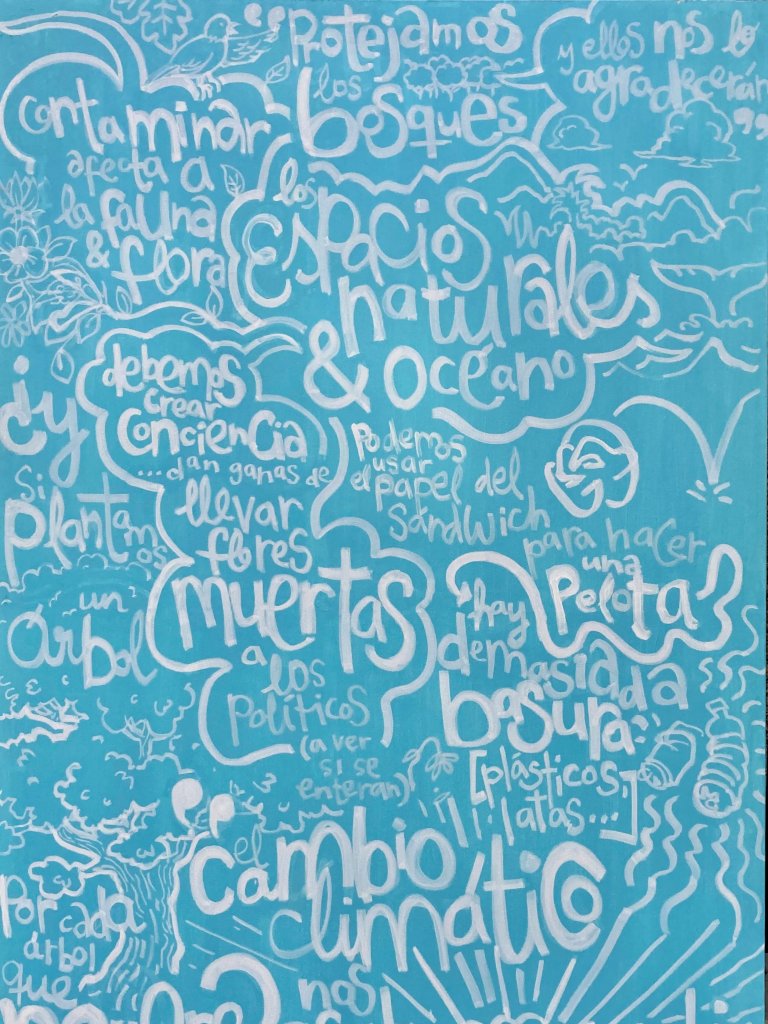 “Protejamos
los
bosques
y ellos nos lo
agradecerán
”
Contaminar
afecta a
la fauna
& flora
los
Espacios
naturales
& océano
debemos
crear
Conciencia
...dan ganas de
llevar
flores
muertas
a los
políticos
(a ver
si se
enteran)
¿y
Si
plantamos
un
Árbol
Podemos
usar
el papel del
sándwich
para hacer
una
Pelota
hay
demasiada
basura
[plásticos,
latas...]
“
el
cambio
climático
nos
Por cada
árbol
que